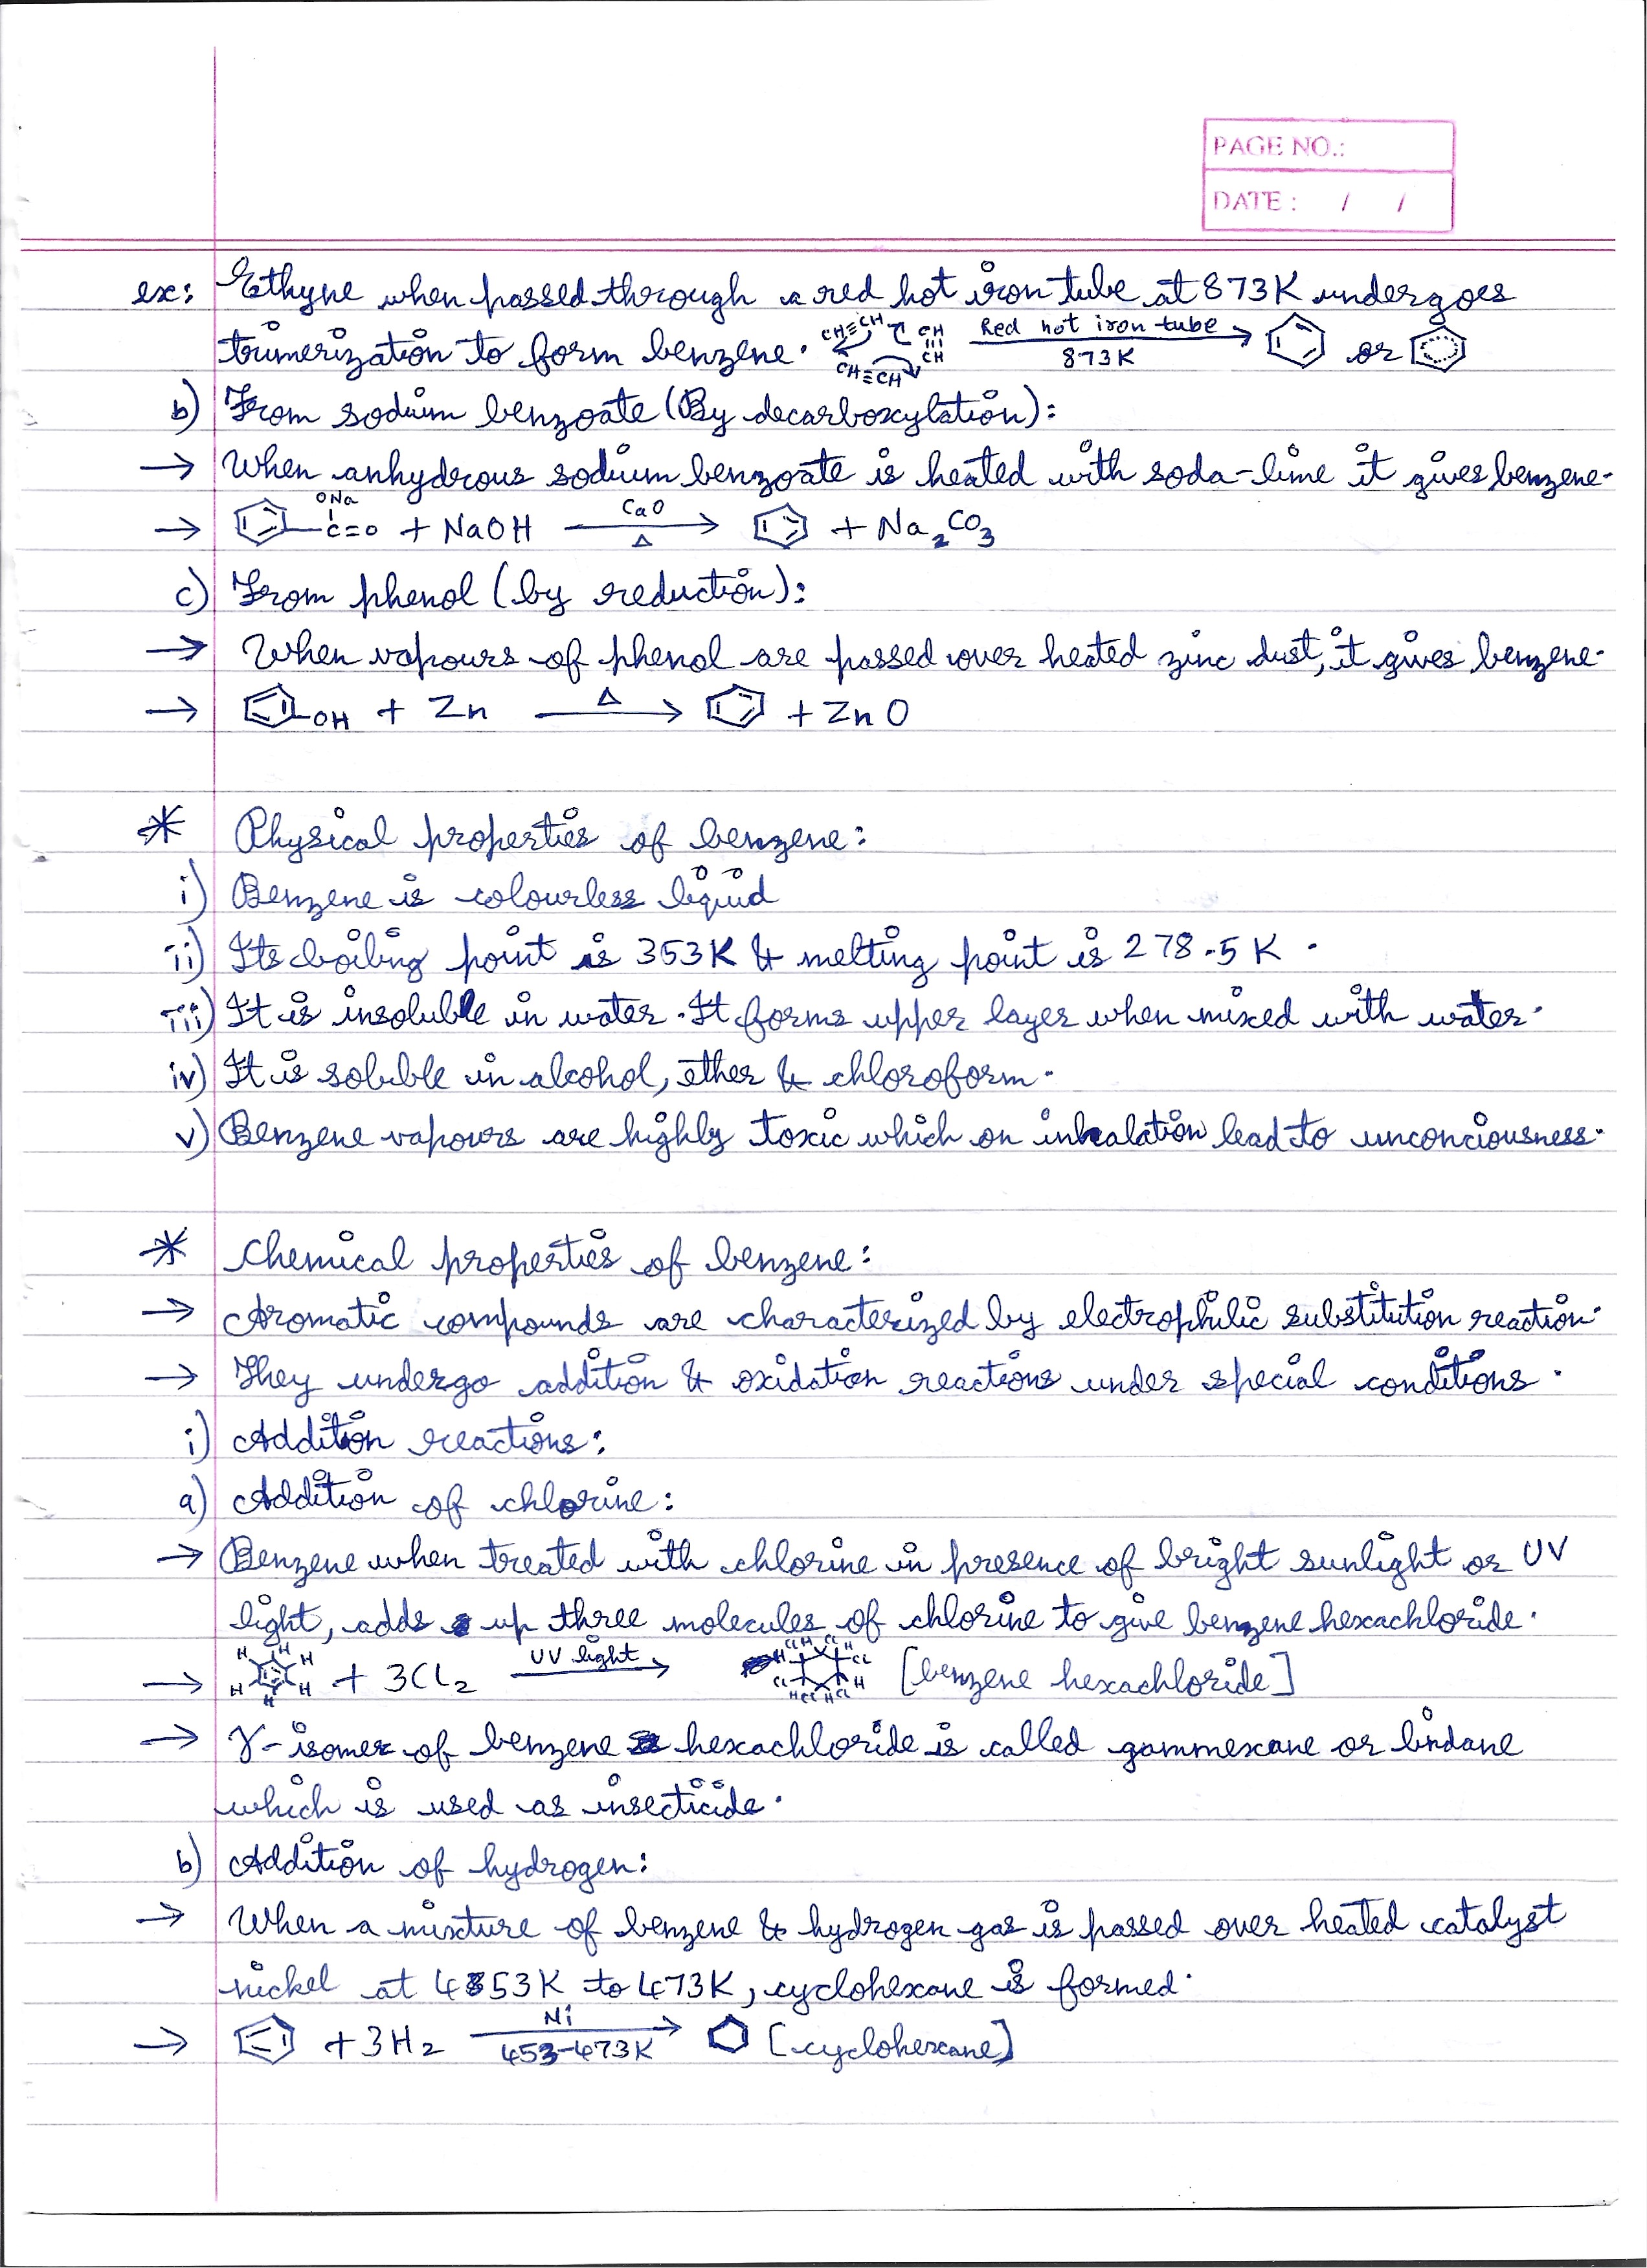 PAGE NO.:
DATE : / /
ex: Ethyne when passed through a red hot iron tube at 873K undergoes
trimerization to form benzene. CH≡CH CH≡CH CH≡CH Red hot iron tube 873K → or
b) From sodium benzoate (By decarboxylation):
→ When anhydrous sodium benzoate is heated with soda-lime it gives benzene.
→ ONa C=O + NaOH CaO Δ → + Na₂CO₃
c) From phenol (by reduction):
→ When vapours of phenol are passed over heated zinc dust, it gives benzene.
→ OH + Zn Δ → + ZnO
* Physical properties of benzene:
i) Benzene is colourless liquid
ii) Its boiling point is 353K & melting point is 278.5K.
iii) It is insoluble in water. It forms upper layer when mixed with water.
iv) It is soluble in alcohol, ether & chloroform.
v) Benzene vapours are highly toxic which on inhalation lead to unconciousness.
* Chemical properties of benzene:
→ Aromatic compounds are characterized by electrophilic substitution reaction.
→ They undergo addition & oxidation reactions under special conditions.
i) Addition reactions:
a) Addition of chlorine:
→ Benzene when treated with chlorine in presence of bright sunlight or UV
light, adds up three molecules of chlorine to give benzene hexachloride.
→ H H H H H H + 3Cl₂ UV light → H Cl H Cl H Cl H Cl H Cl H Cl [benzene hexachloride]
→ γ-isomer of benzene hexachloride is called gammexane or lindane
which is used as insecticide.
b) Addition of hydrogen:
→ When a mixture of benzene & hydrogen gas is passed over heated catalyst
nickel at 453K to 473K, cyclohexane is formed.
→ + 3H₂ Ni 453-473K → [cyclohexane]